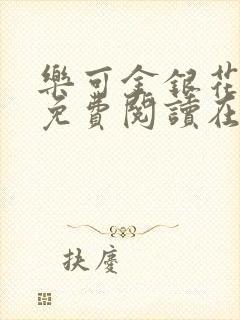 樂可金銀花
免費閱讀在
扶慶